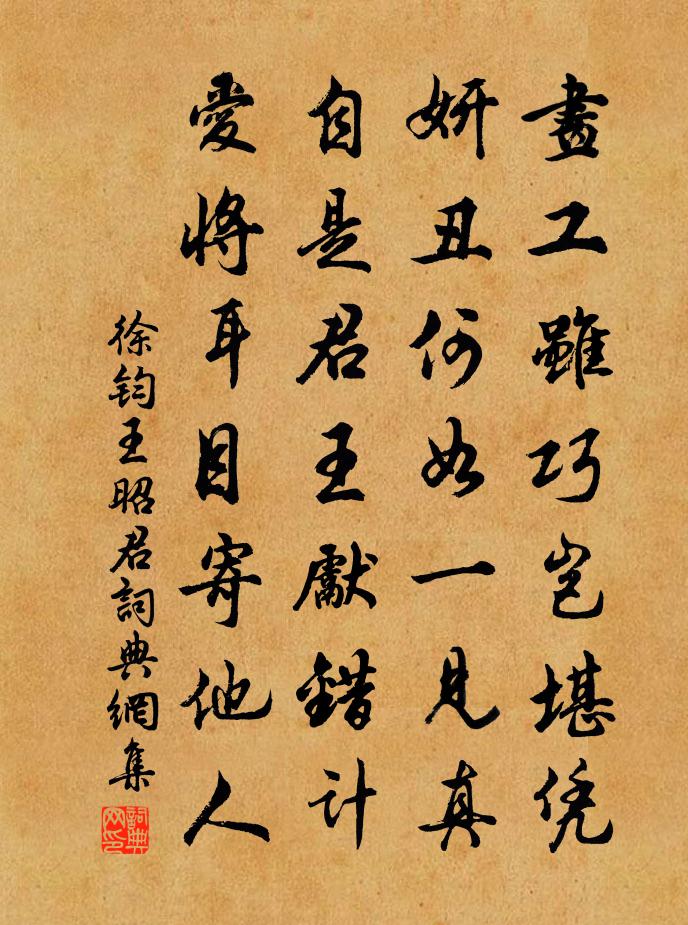 畫工雖巧豈堪凭
妍丑何如一見真
自是君王獻錯計
愛將耳目寄他人
徐鈞王昭君詞典網集
詞典
网印